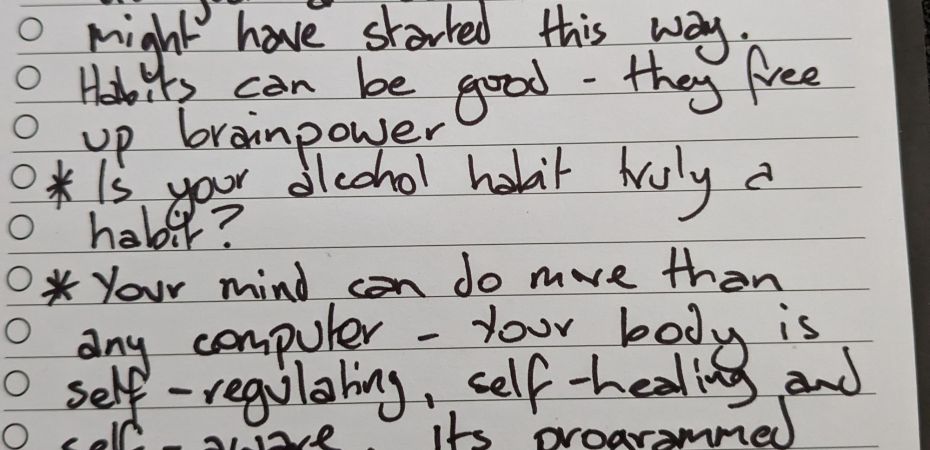 might have started this way.
Habits can be good - they free
up brainpower
* Is your alcohol habit truly a
habit?
* Your mind can do more than
any computer - Your body is
self-regulating, self-healing and
self-aware. Its programmed